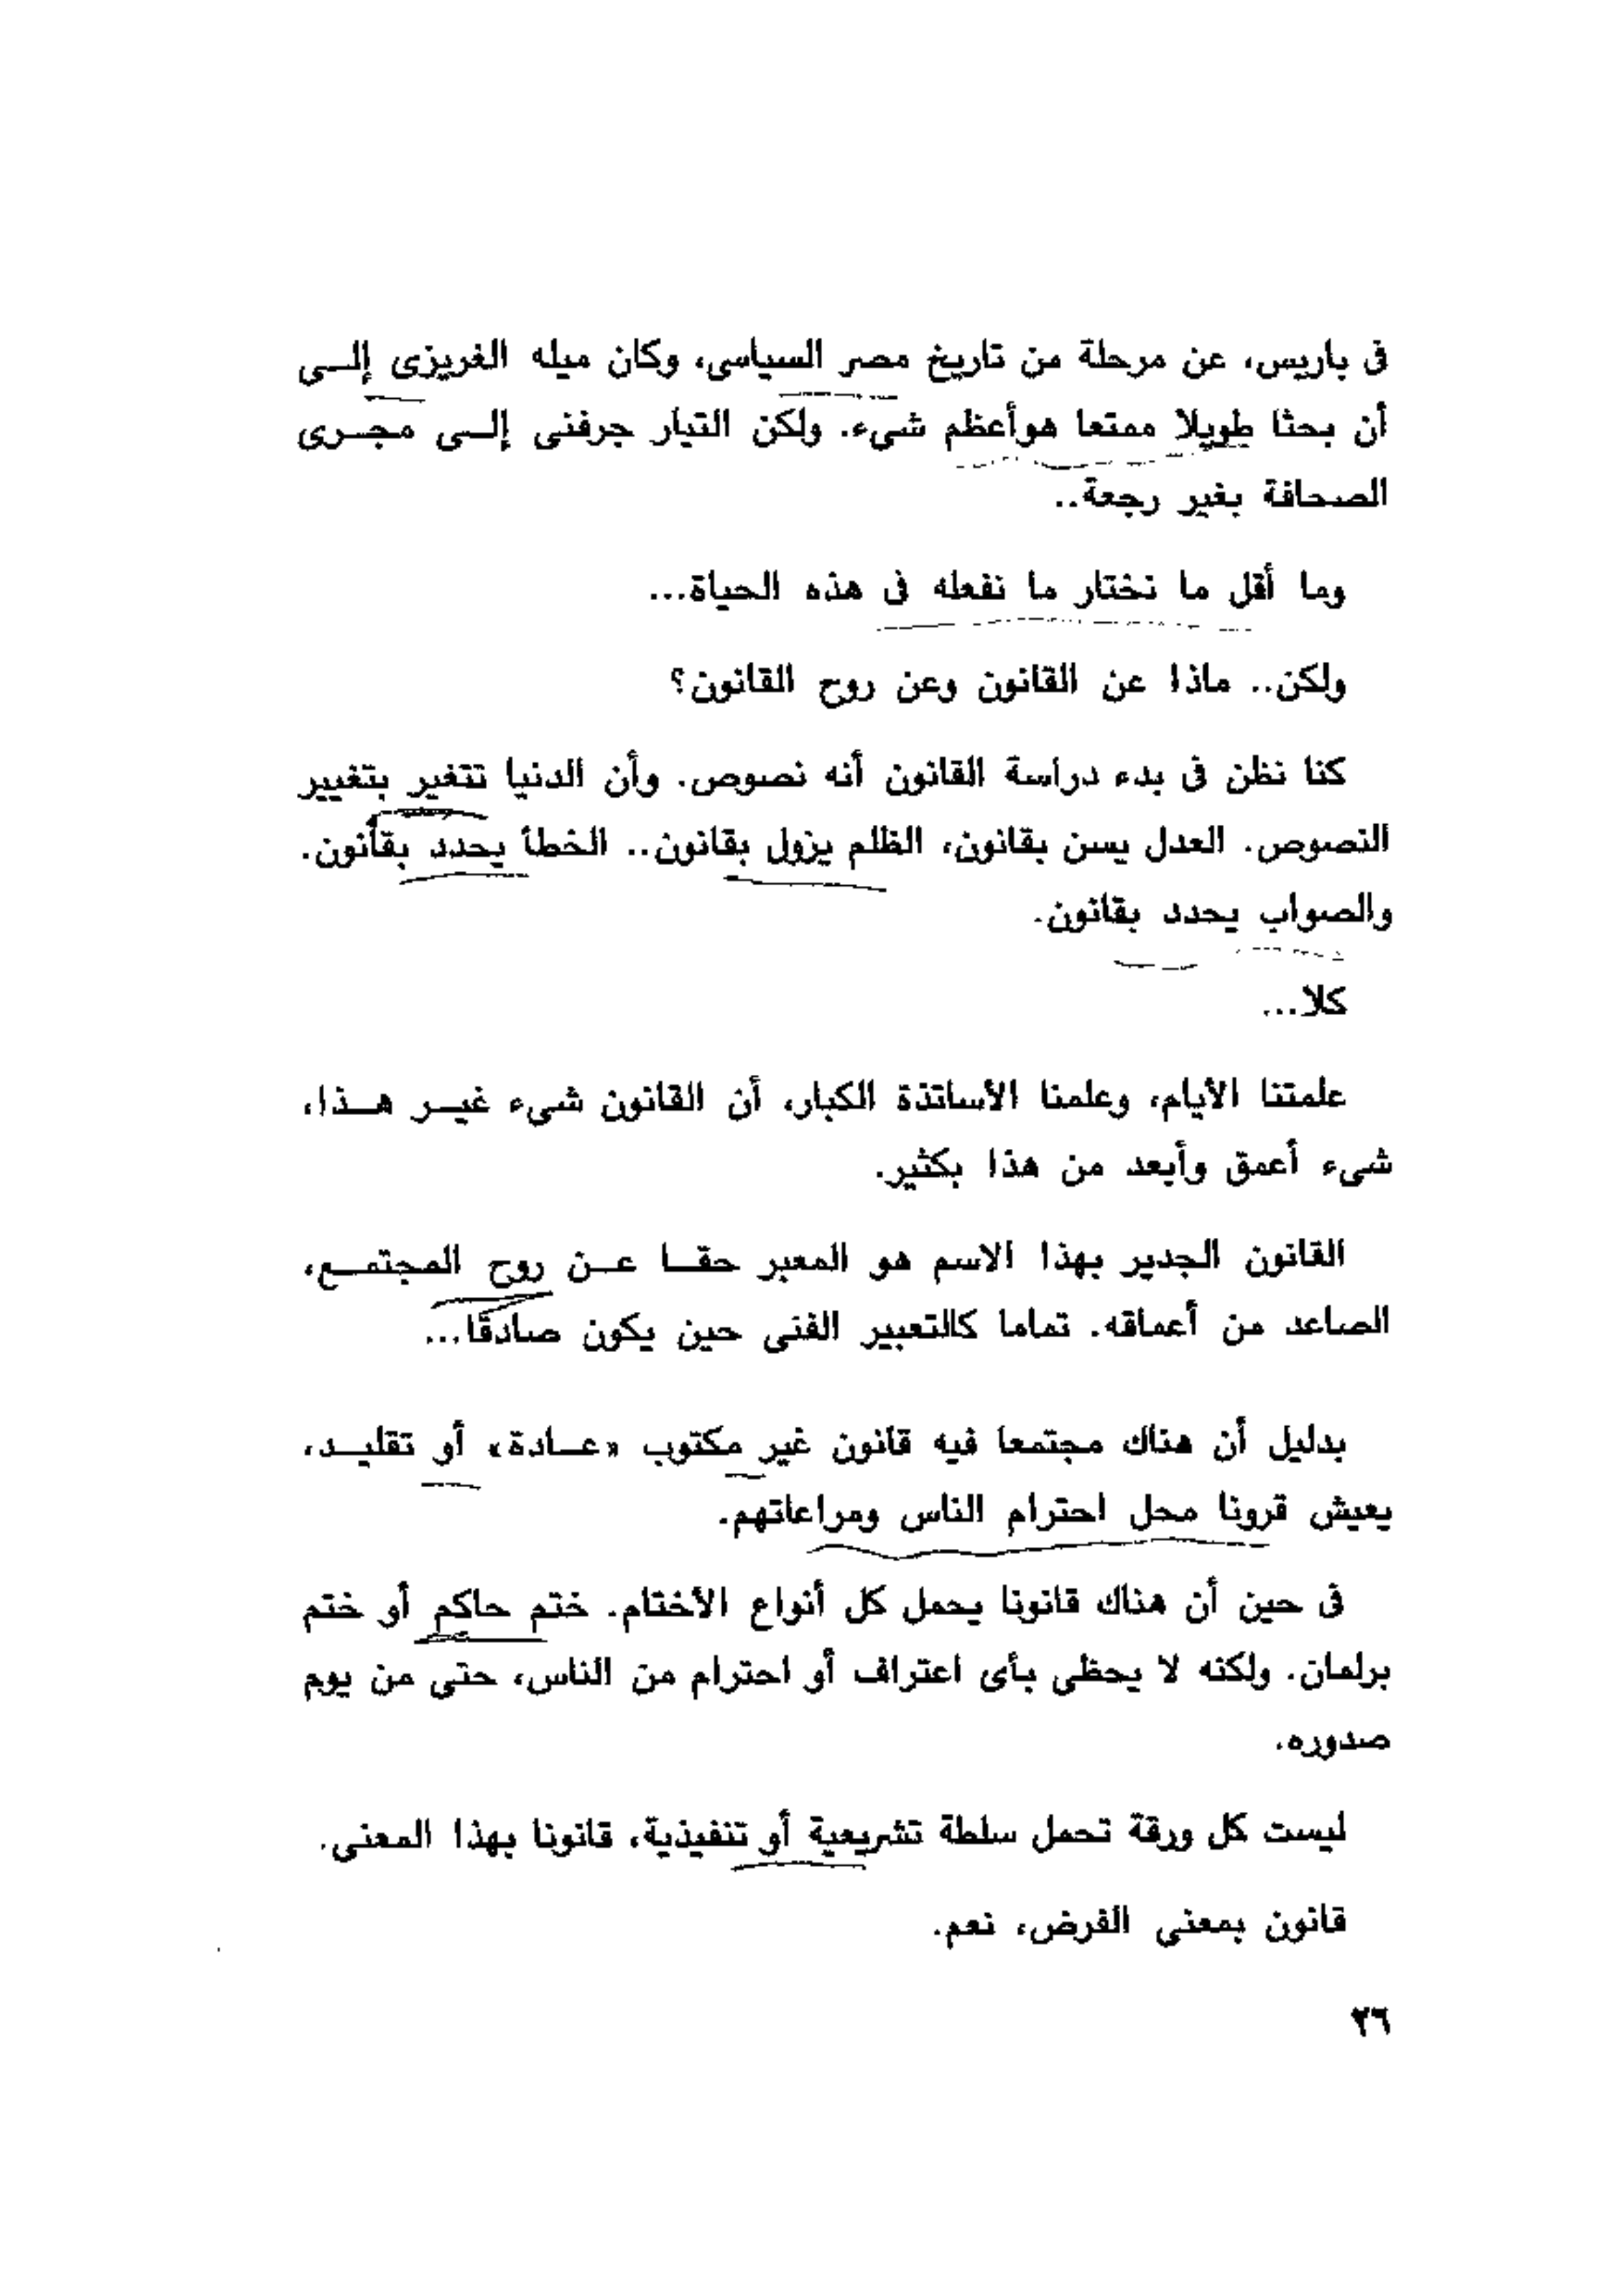 فى باريس، عن مرحلة من تاريخ مصر السياسى، وكان ميله الغريزى إلـى
أن بحثا طويلا ممتعا هوأعظم شىء. ولكن التيار جرفنى إلـى مجـرى
الصحافة بغير رجعة..
وما أقل ما نختار ما نفعله فى هذه الحياة...
ولكن.. ماذا عن القانون وعن روح القانون؟
كنا نظن فى بدء دراسة القانون أنه نصوص. وأن الدنيا تتغير بتغيير
النصوص. العدل يسن بقانون، الظلم يزول بقانون.. الخطأ يحدد بقانون.
والصواب يحدد بقانون.
كلا...
علمتنا الأيام، وعلمنا الأساتذة الكبار، أن القانون شىء غيـر هـذا،
شىء أعمق وأبعد من هذا بكثير.
القانون الجدير بهذا الاسم هو المعبر حقـا عـن روح المجتمـع،
الصاعد من أعماقه. تماما كالتعبير الفنى حين يكون صادقًا...
بدليل أن هناك مجتمعا فيه قانون غير مكتوب «عـادة» أو تقليـد،
يعيش قرونا محل احترام الناس ومراعاتهم.
فى حين أن هناك قانونا يحمل كل أنواع الأختام. ختم حاكم أو ختم
برلمان. ولكنه لا يحظى بأى اعتراف أو احترام من الناس، حتى من يوم
صدوره.
ليست كل ورقة تحمل سلطة تشريعية أو تنفيذية، قانونا بهذا المعنى.
قانون بمعنى الفرض، نعم.
٢٦